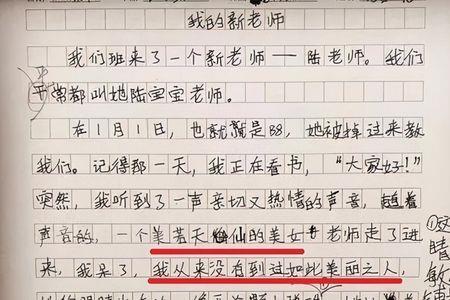 我的新老师
我们班来了一个新老师——陆老师。我们
平常都叫她陆宝宝老师。
在1月1日，也就是，她被掉过来教
我们。记得那一天，我正在看书，“大家好！”
突然，我听到了一声亲切又热情的声音，随着
声音的，一个美若天仙的美女老师走了进
来，我呆了，我从来没有到过如此美丽之人，
①这
睛
敏